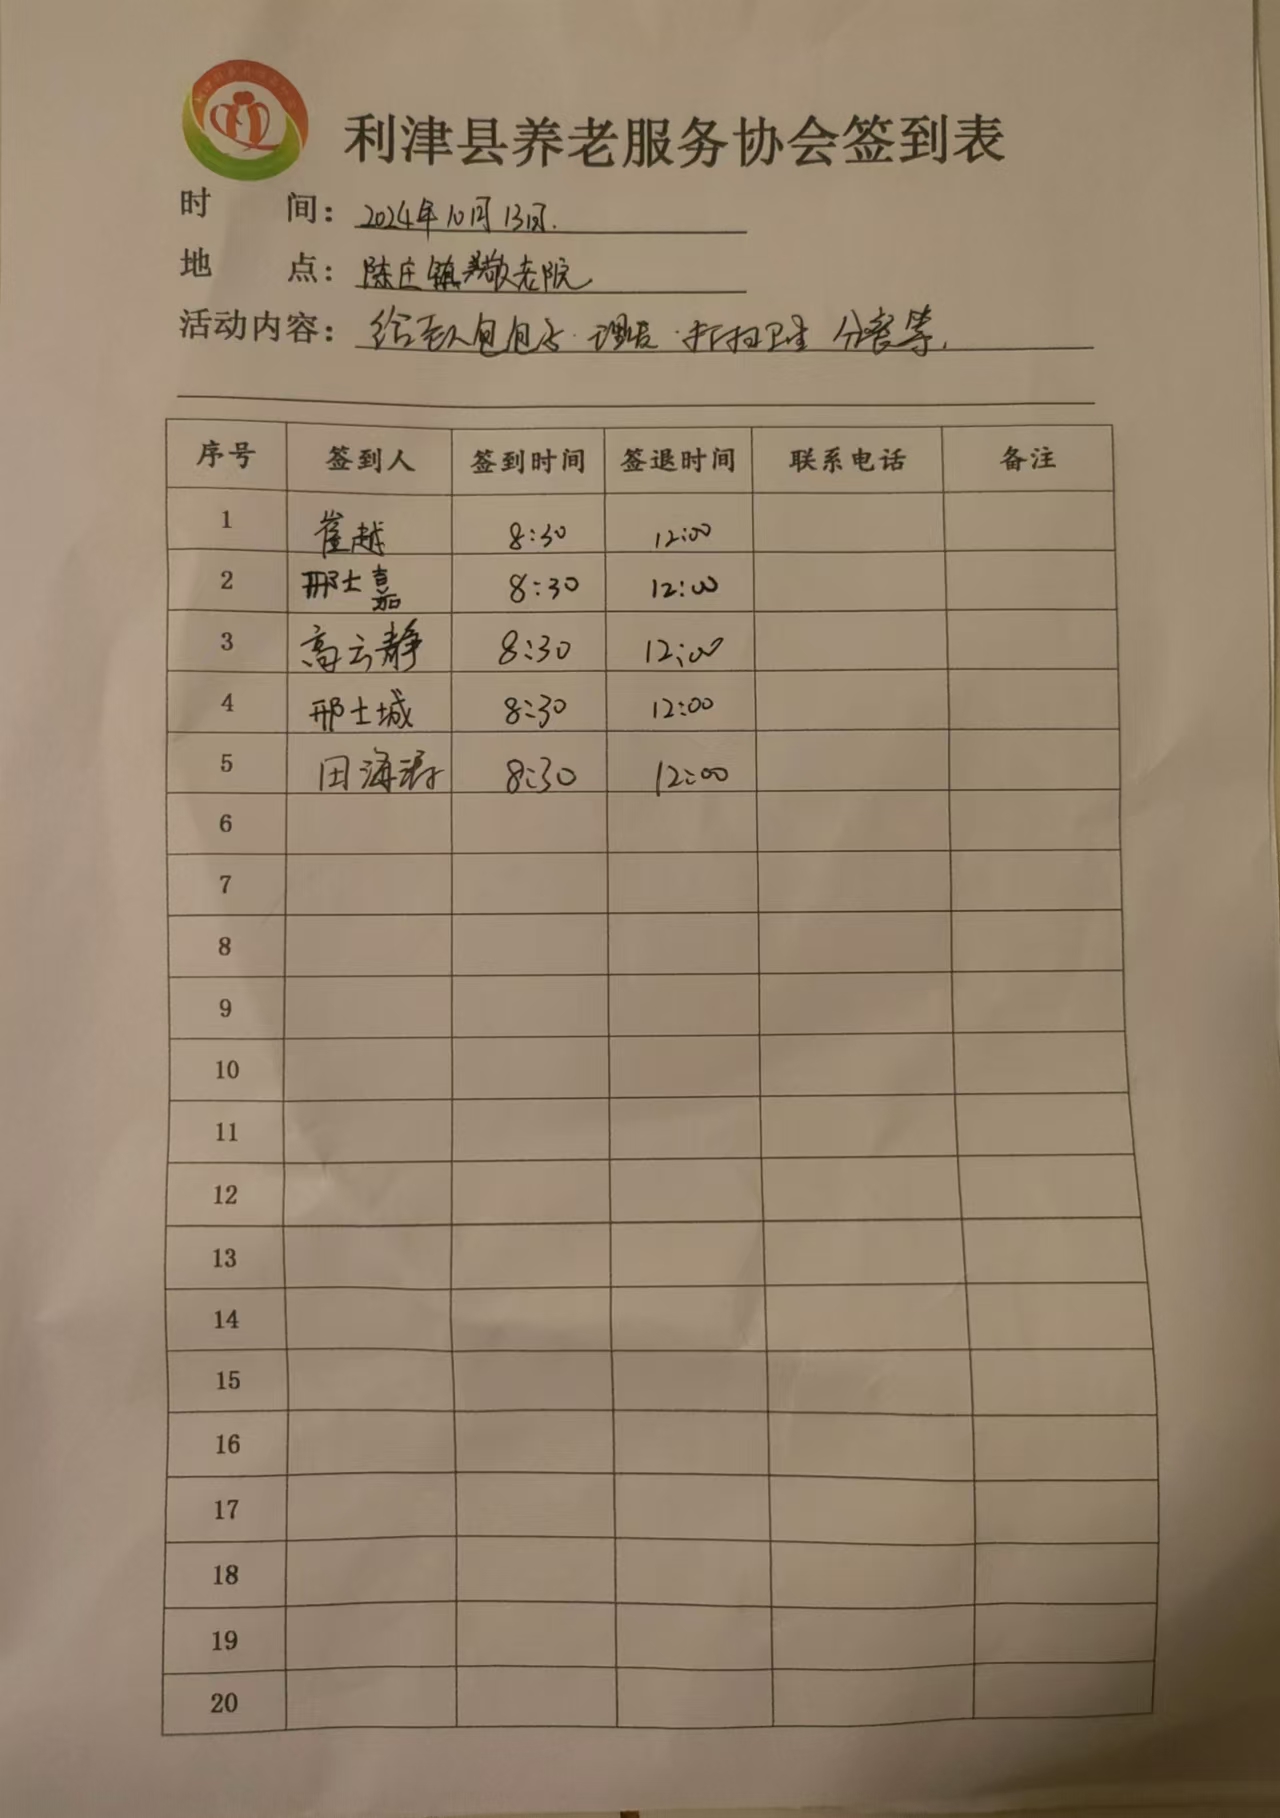 利津县养老服务协会签到表
时 间：2024年10月13日.
地 点：陈庄镇敬老院
活动内容：给老人包包子.理发.打扫卫生 分餐等.
序号 签到人 签到时间 签退时间 联系电话 备注
1 崔越 8:30 12:00
2 邢士嘉 8:30 12:00
3 高云静 8:30 12:00
4 邢士城 8:30 12:00
5 田海涛 8:30 12:00
6
7
8
9
10
11
12
13
14
15
16
17
18
19
20